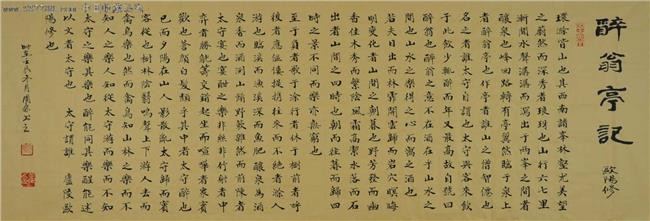 醉翁亭記
歐陽修
環滁皆山也其西南諸峯林壑尤美望
之蔚然而深秀者琅琊也山行六七里
漸聞水聲潺潺而瀉出于兩峯之間者
釀泉也峰回路轉有亭翼然臨于泉上
者醉翁亭也作亭者誰山之僧智僊也
名之者誰太守自謂也太守與客來飲
于此飲少輒醉而年又最高故自號曰
醉翁也醉翁之意不在酒在乎山水之
間也山水之樂得之心而寓之酒也
若夫日出而林霏開雲歸而岩穴暝晦
明變化者山間之朝暮也野芳發而幽
香佳木秀而繁陰風霜高潔水落而石
出者山間之四時也朝而往暮而歸四
時之景不同而樂亦無窮也
至于負者歌于塗行者休于樹前者呼
後者應傴僂提攜往來而不絕者滁人
游也臨溪而漁溪深而魚肥釀泉為酒
泉香而酒洌山餚野蔌雜然而前陳者
太守宴也宴酣之樂非絲非竹射者中
弈者勝觥籌交錯起坐而喧嘩者眾賓
歡也蒼顏白髮頹乎其中者太守醉也
已而夕陽在山人影散亂太守歸而賓
客從也樹林陰翳鳴聲上下游人去而
禽鳥樂也然而禽鳥知山林之樂而不
知人之樂人知從太守游而樂而不知
太守之樂其樂也醉能同其樂醒能述
以文者太守也太守謂誰廬陵歐
陽修也